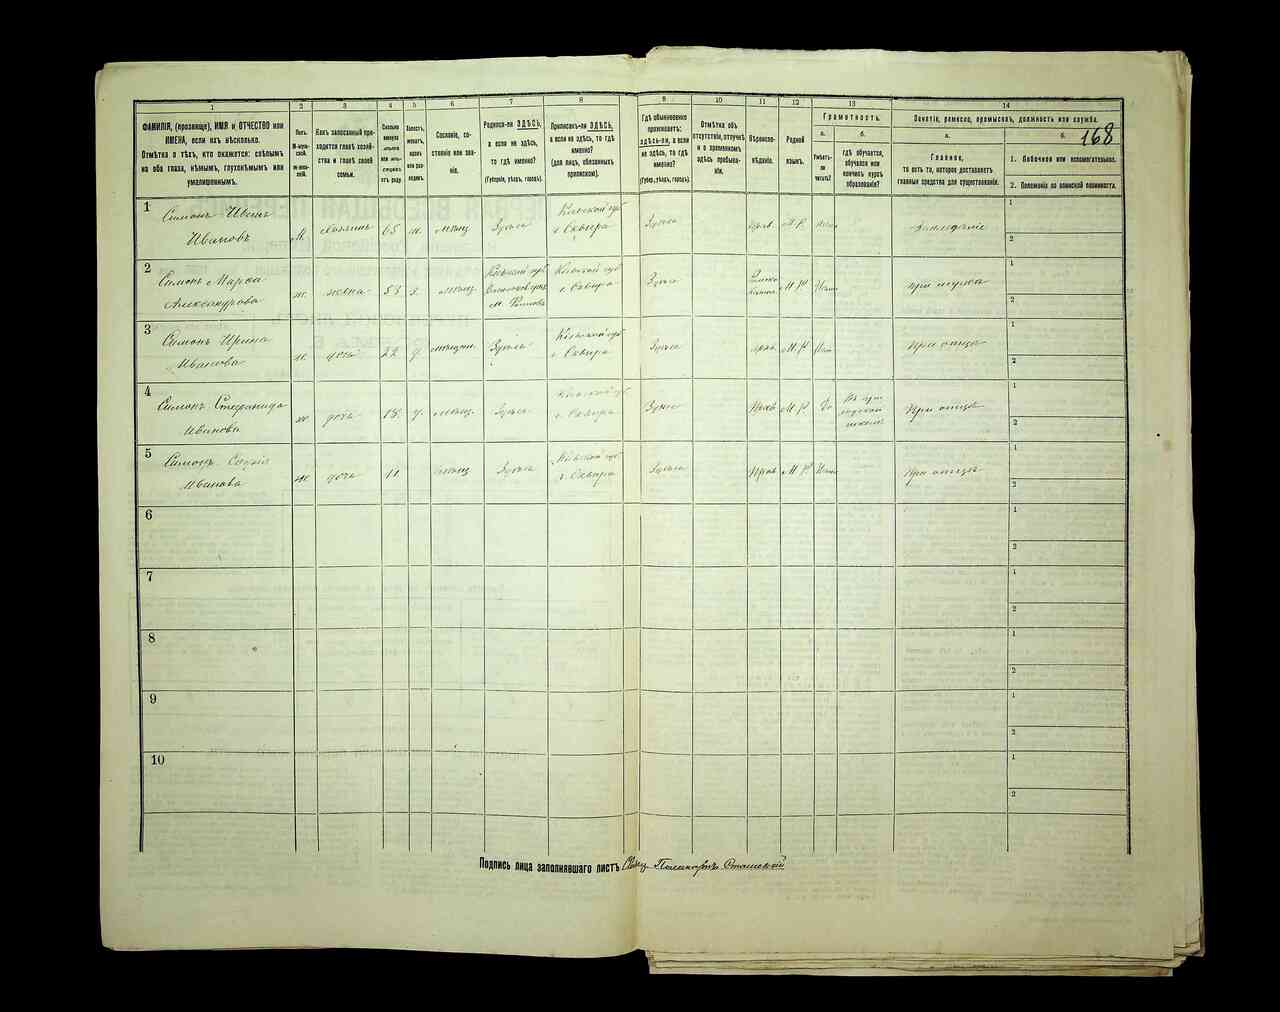 168
1 2 3 4 5 6 7 8 9 10 11 12 13 14
ФАМИЛІЯ, (прозвище), ИМЯ и ОТЧЕСТВО или ИМЕНА, если ихъ нѣсколько.
Отмѣтка о тѣхъ, кто окажется: слѣпымъ на оба глаза, нѣмымъ, глухонѣмымъ или умалишеннымъ.
Полъ.
М-мужской.
Ж-женскій.
Какъ записанный приходится главѣ хозяйства и главѣ своей семьи.
Сколько минуло лѣтъ или мѣсяцевъ отъ роду.
Холостъ, женатъ, вдовъ или разведенъ.
Сословіе, состояніе или званіе.
Родился-ли ЗДѢСЬ, а если не здѣсь, то гдѣ именно?
(Губернія, уѣздъ, городъ).
Приписанъ-ли ЗДѢСЬ, а если не здѣсь, то гдѣ именно?
(для лицъ, обязанныхъ припискою).
Гдѣ обыкновенно проживаетъ: здѣсь-ли, а если не здѣсь, то гдѣ именно?
(Губер., уѣздъ, городъ).
Отмѣтка объ отсутствіи, отлучкѣ и о временномъ здѣсь пребываніи.
Вѣроисповѣданіе.
Родной языкъ.
Грамотность.
а.
Умѣетъ-ли читать?
б.
гдѣ обучается, обучался или кончилъ курсъ образованія?
Занятіе, ремесло, промыселъ, должность или служба.
а.
Главное,
то есть то, которое доставляетъ главныя средства для существованія.
б.
1. Побочное или вспомогательное.
2. Положеніе по воинской повинности.
1 Симонъ Иванъ Ивановъ М. хозяинъ 65 ж. мѣщ Здѣсь Кіевской губ г. Сквира Здѣсь Прав. М.Р. 1 2
2 Симонъ Марія Александрова ж. жена 53 з. мѣщ. Кіевской губ м. Кіевской губ г. Сквира Здѣсь М.Р. 1 2
3 Симонъ Ирина Иванова ж дочь 22 д. Здѣсь Кіевской губ г. Сквира Здѣсь прав М.Р При отцѣ 1 2
4 Симонъ Стефанида Иванова ж дочь 18 д. мѣщ. Здѣсь Кіевской губ г. Сквира Здѣсь Прав М.Р Да школѣ При отцѣ 1 2
5 Симонъ Софія Иванова ж дочь 11 мѣщ Здѣсь Кіевской губ г. Сквира Здѣсь Прав М.Р При отцѣ 1 2
6 1 2
7 1 2
8 1 2
9 1 2
10 1 2
Подпись лица заполнявшаго листъ Поликарпъ